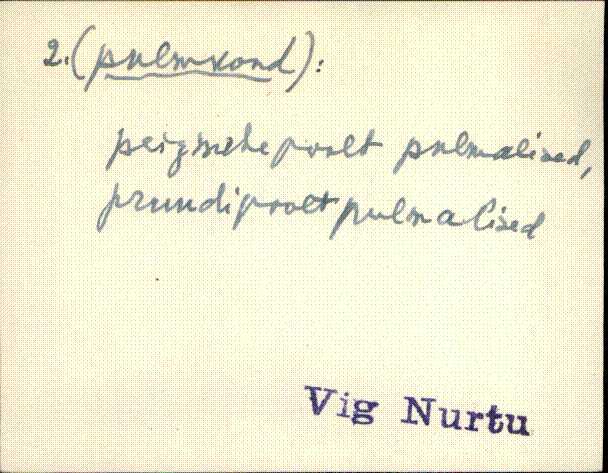 2. (pulmkond):
peigmehepoolt pulmalised,
pruudipoolt pulmalised
Vig Nurtu